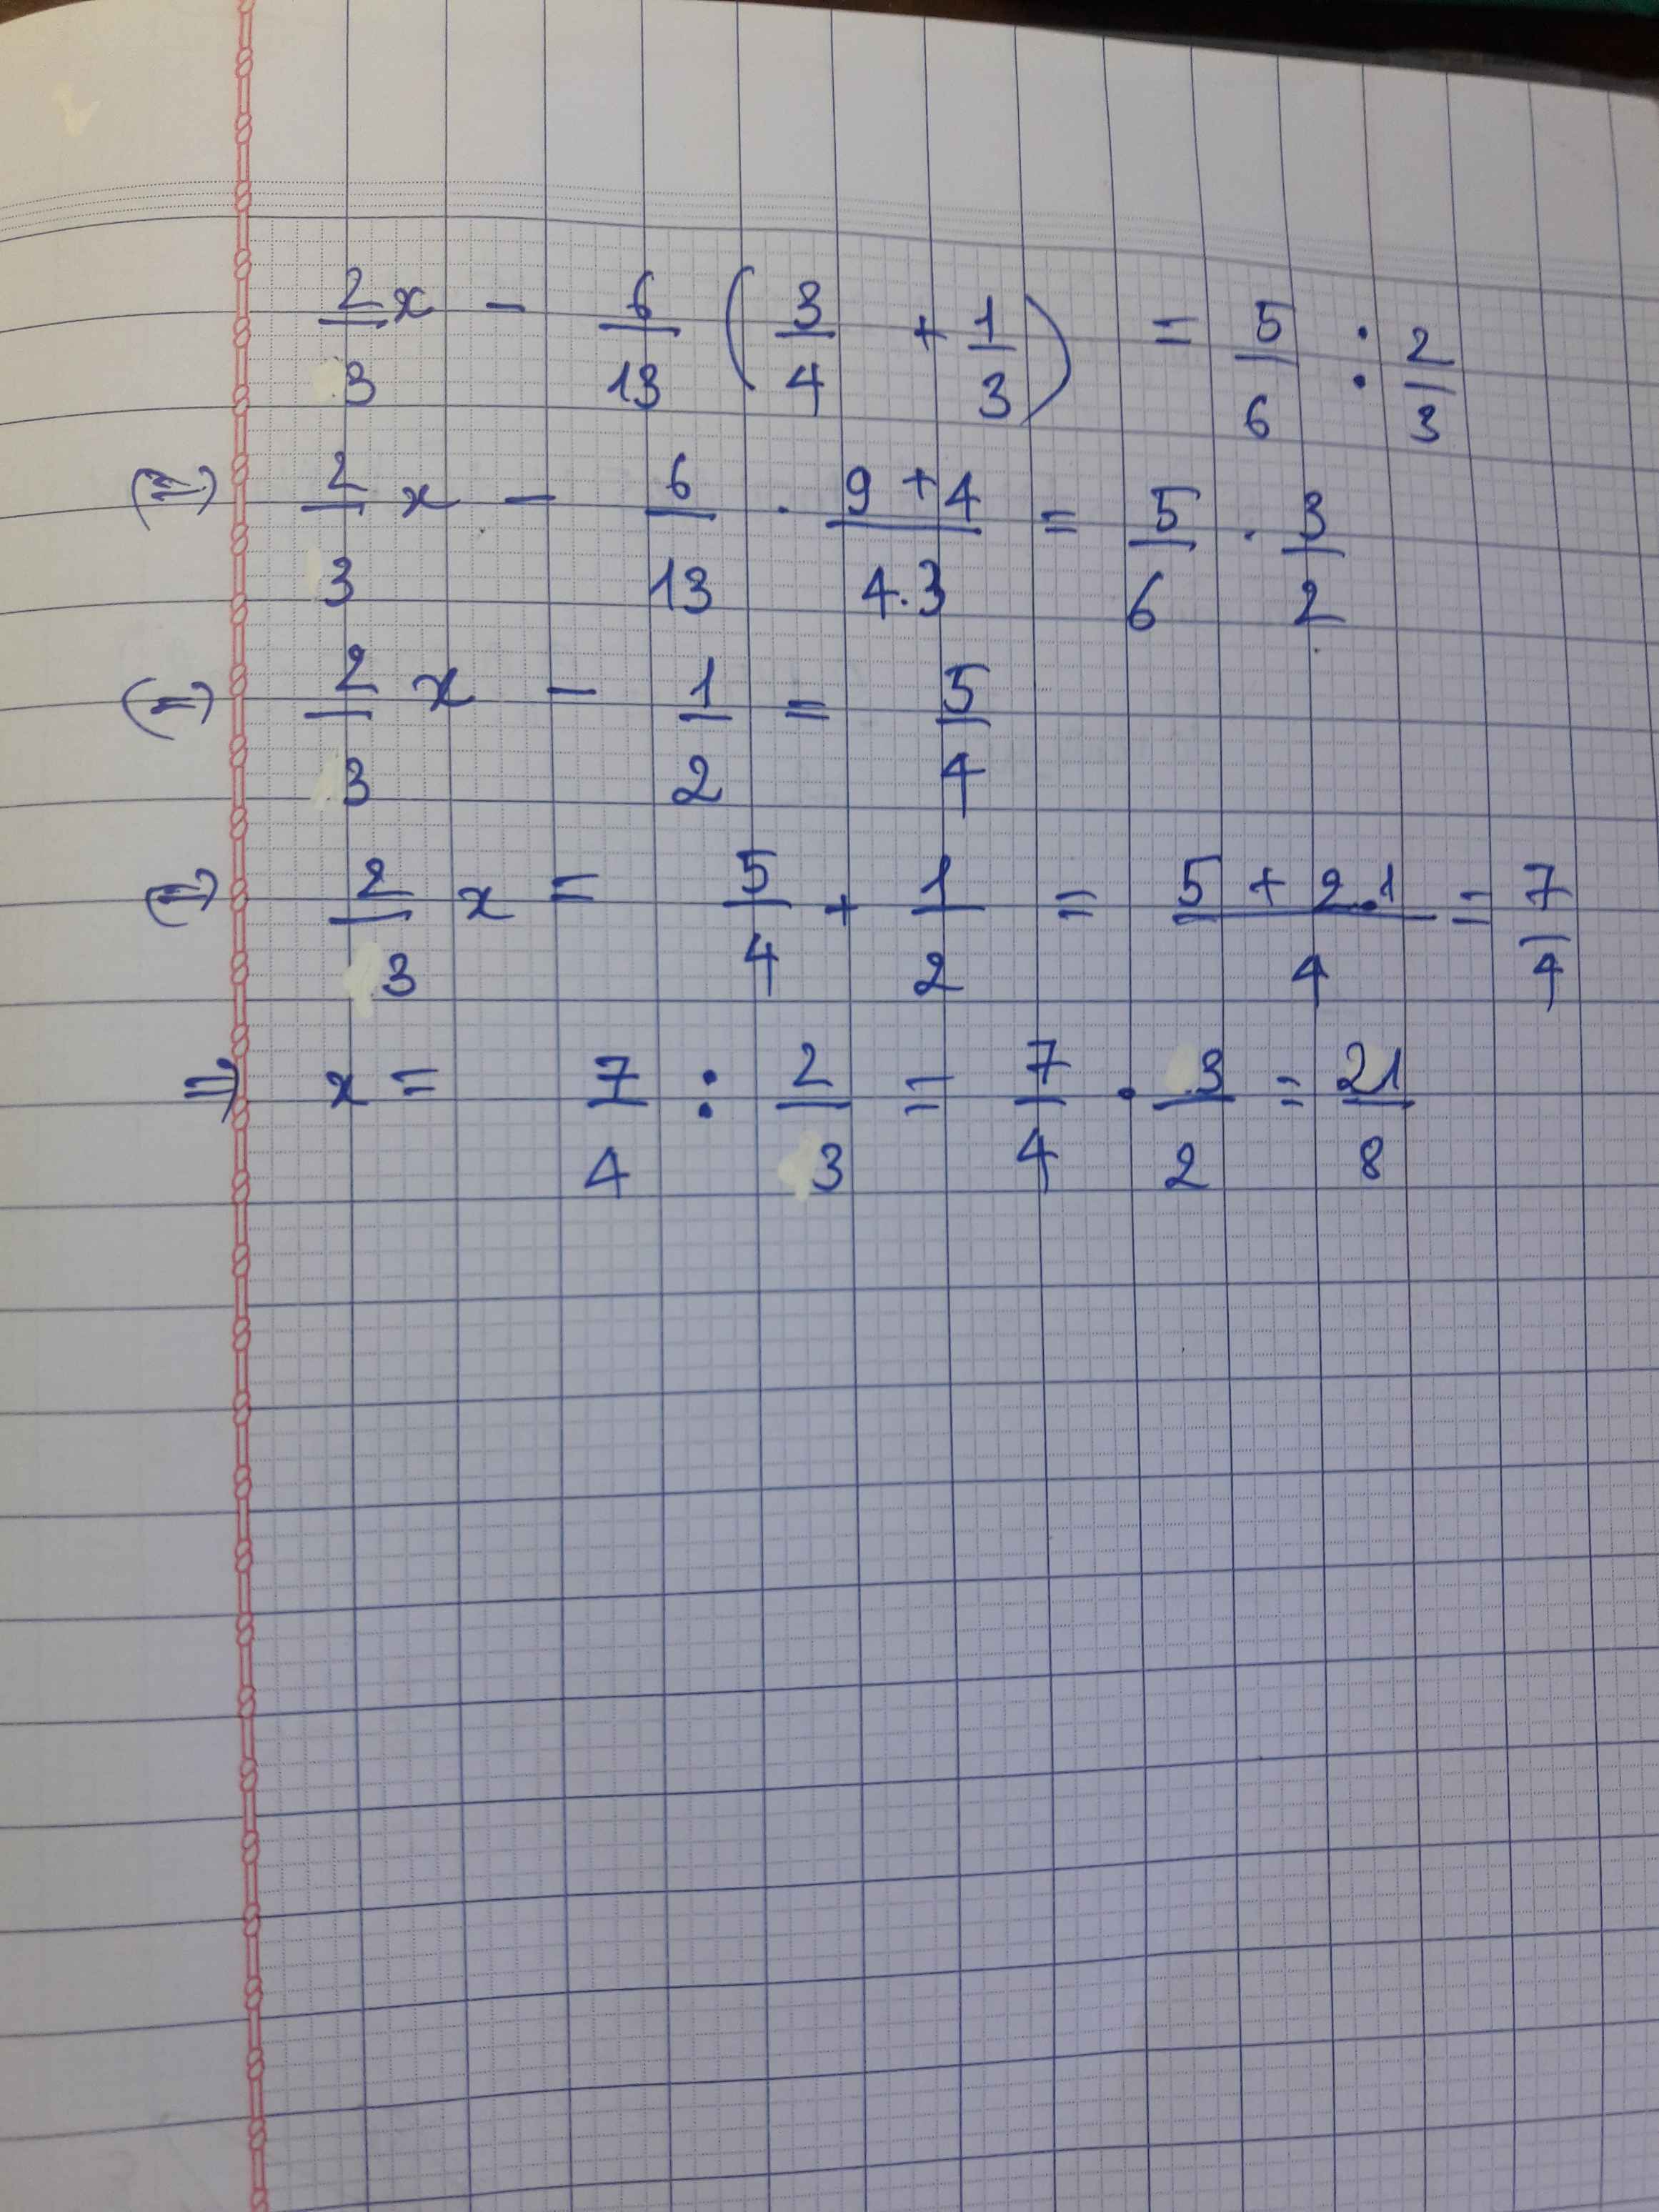 2/3 x - 6/13 ( 3/4 + 1/3 ) = 5/6 : 2/3
(=) 2/3 x - 6/13 . 9+4/4.3 = 5/6 . 3/2
(=) 2/3 x - 1/2 = 5/4
(=) 2/3 x = 5/4 + 1/2 = 5 + 2.1/4 = 7/4
=) x = 7/4 : 2/3 = 7/4 . 3/2 = 21/8